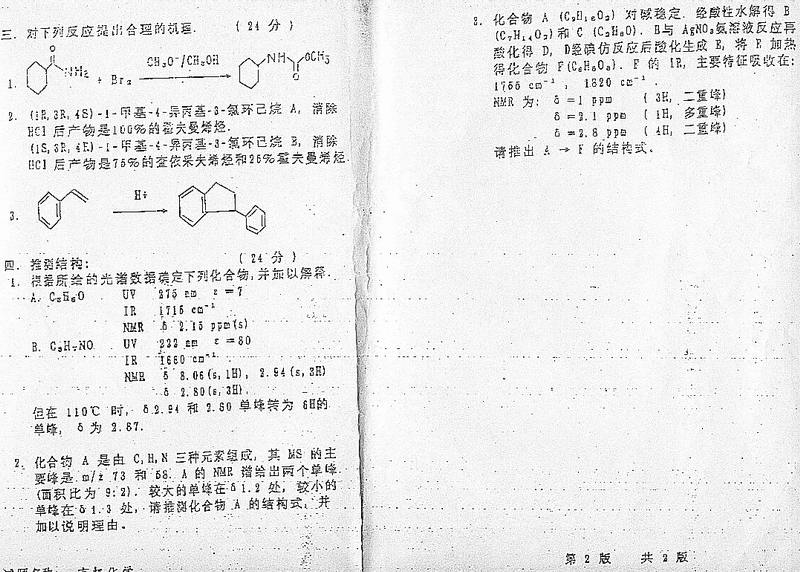 三. 对下列反应提出合理的机理. (24 分)
1. O NH₂ + Br₂ CH₃O⁻/CH₃OH NH O OCH₃
2. (1R, 3R, 4S)-1-甲基-4-异丙基-3-氯环己烷 A, 消除
HCl 后产物是100%的霍夫曼烯烃.
(1S, 3R, 4R)-1-甲基-4-异丙基-3-氯环己烷 B, 消除
HCl 后产物是75%的查依采夫烯烃和25%霍夫曼烯烃.
3. H+
四. 推测结构: (24 分)
1. 根据所给的光谱数据确定下列化合物, 并加以解释.
A. C₃H₆O UV 275 nm ε = 7
IR 1715 cm⁻¹
NMR δ 2.15 ppm(s)
B. C₃H₇NO UV 222 nm ε = 60
IR 1660 cm⁻¹
NMR δ 8.06(s, 1H), 2.94(s, 3H)
δ 2.80(s, 3H).
但在 110℃ 时, δ 2.94 和 2.80 单峰转为 6H的
单峰, δ 为 2.87.
2. 化合物 A 是由 C, H, N 三种元素组成, 其 MS 的主
要峰是 m/z 73 和 58. A 的 NMR 谱给出两个单峰
(面积比为 9:2). 较大的单峰在δ 1.2 处, 较小的
单峰在δ 1.3 处, 请推测化合物 A 的结构式, 并
加以说明理由。
3. 化合物 A (C₉H₁₈O₂) 对碱稳定. 经酸性水解得 B
(C₇H₁₄O₂) 和 C (C₂H₆O). B与 AgNO₃氨溶液反应再
酸化得 D, D经碘仿反应后酸化生成 E, 将 E 加热
得化合物 F(C₆H₈O₃). F 的 IR, 主要特征吸收在:
1755 cm⁻¹, 1820 cm⁻¹.
NMR 为: δ = 1 ppm (3H, 二重峰)
δ = 2.1 ppm (1H, 多重峰)
δ = 2.8 ppm (4H, 二重峰)
请推出 A → F 的结构式。
第 2 版 共 2 版